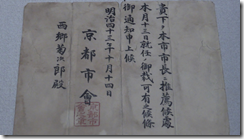 貴下ヲ本市市長ニ推薦候處
本月十三日就任ノ御裁可有之候條
御通知申上候
明治四十三年十月十四日
京都市會
西郷菊次郎殿